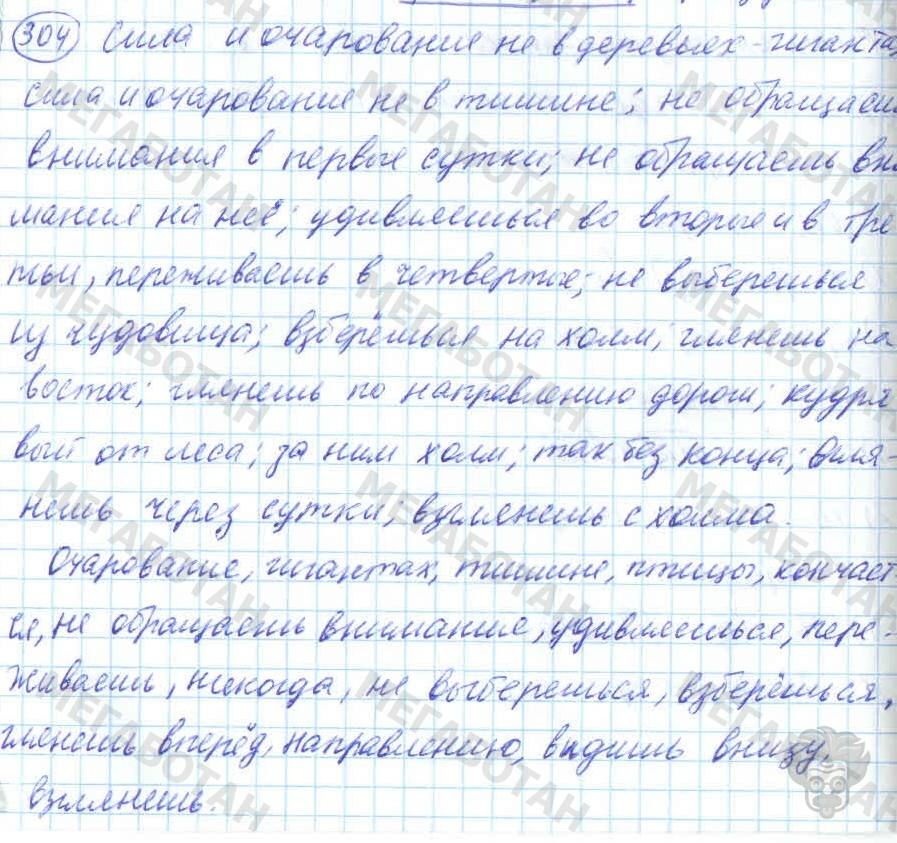 304 Сила и очарование не в деревьях-гиганта
сила и очарование не в тишине; не обращаеш
внимания в первые сутки; не обращаешь вни
мания на неё; удивляешься во вторые и в тре
тьи, переживаешь в четвертые; не выберешься
из чудовища; взберёшься на холм; глянешь на
восток; глянешь по направлению дороги; кудря
вый от леса; за ним холм; так без конца; гля-
нешь через сутки; взглянешь с холма.
Очарование, гигантах, тишине, птицы, кончает
ся, не обращаешь внимание, удивляешься, пере-
живаешь, никогда, не выберешься, взберёшься,
глянешь вперёд, направлению, видишь внизу,
взглянешь.
МЕГАБОТАН